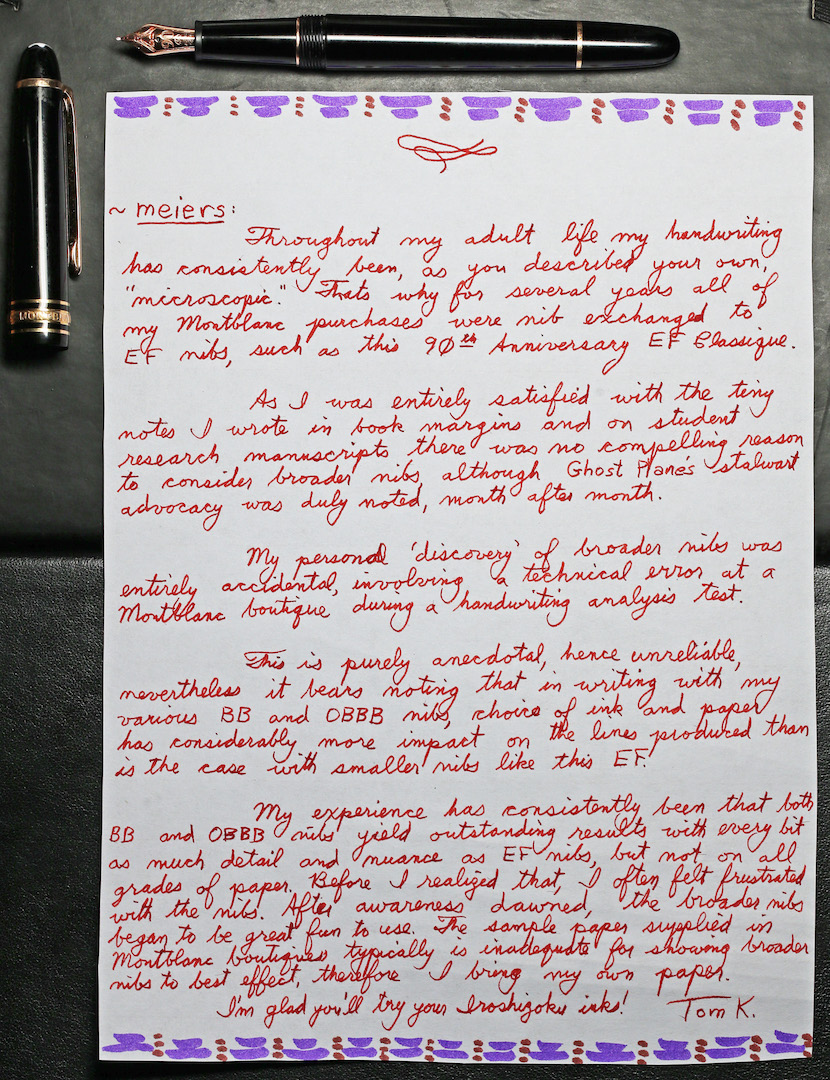 ~ meiers:
Throughout my adult life my handwriting
has consistently been, as you described your own,
"microscopic." Thats why for several years all of
my Montblanc purchases were nib exchanged to
EF nibs, such as this 90th Anniversary EF Classique.
As I was entirely satisfied with the tiny
notes I wrote in book margins and on student
research manuscripts there was no compelling reason
to consider broader nibs, although Ghost Plane's stalwart
advocacy was duly noted, month after month.
My personal 'discovery' of broader nibs was
entirely accidental, involving a technical error at a
Montblanc boutique during a handwriting analysis test.
This is purely anecdotal, hence unreliable,
nevertheless it bears noting that in writing with my
various BB and OBBB nibs, choice of ink and paper
has considerably more impact on the lines produced than
is the case with smaller nibs like this EF.
My experience has consistently been that both
BB and OBBB nibs yield outstanding results with every bit
as much detail and nuance as EF nibs, but not on all
grades of paper. Before I realized that, I often felt frustrated
with the nibs. After awareness dawned, the broader nibs
began to be great fun to use. The sample paper supplied in
Montblanc boutiques typically is inadequate for showing broader
nibs to best effect, therefore I bring my own paper.
I'm glad you'll try your Iroshizoku inks! Tom K.